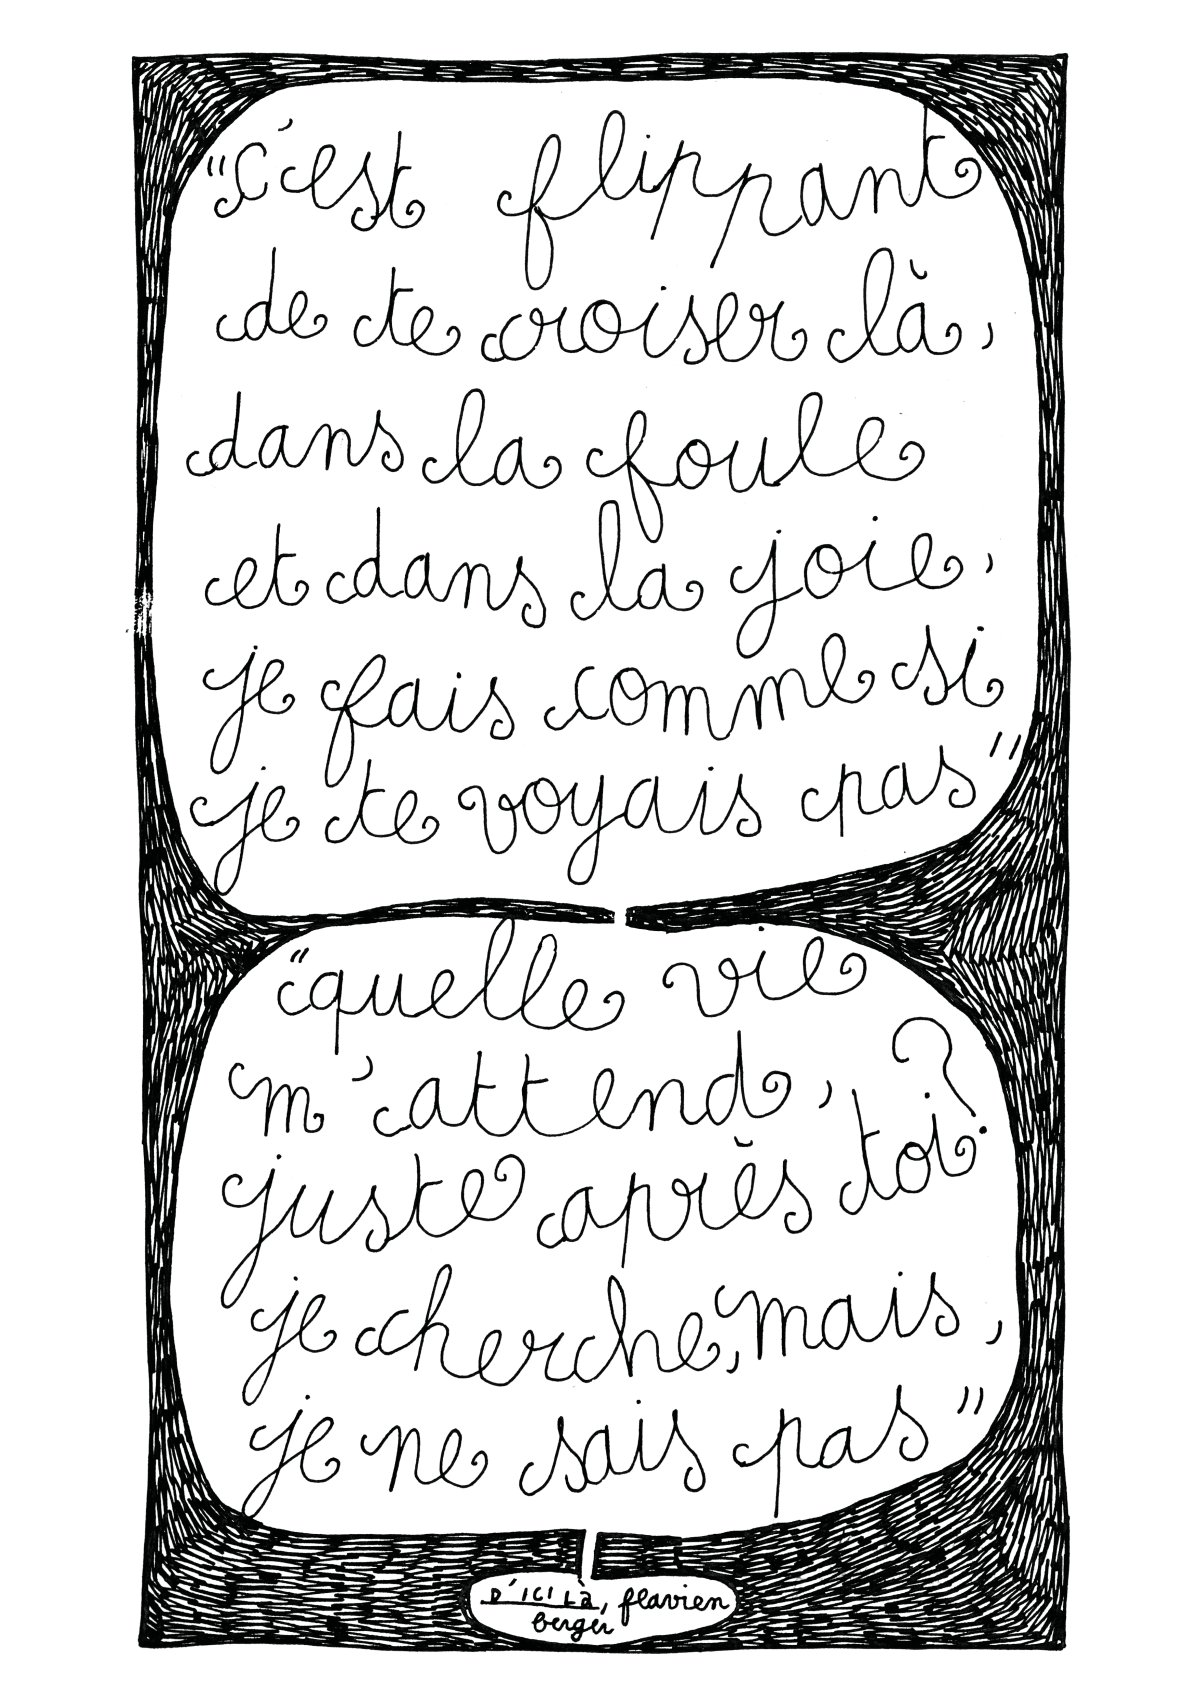 "c'est flippant
de te croiser là,
dans la foule
et dans la joie,
je fais comme si
je te voyais pas"
"quelle vie
m'attend,
juste après toi?
je cherche, mais,
je ne sais pas"
D'ICI LÀ, flavien
berger